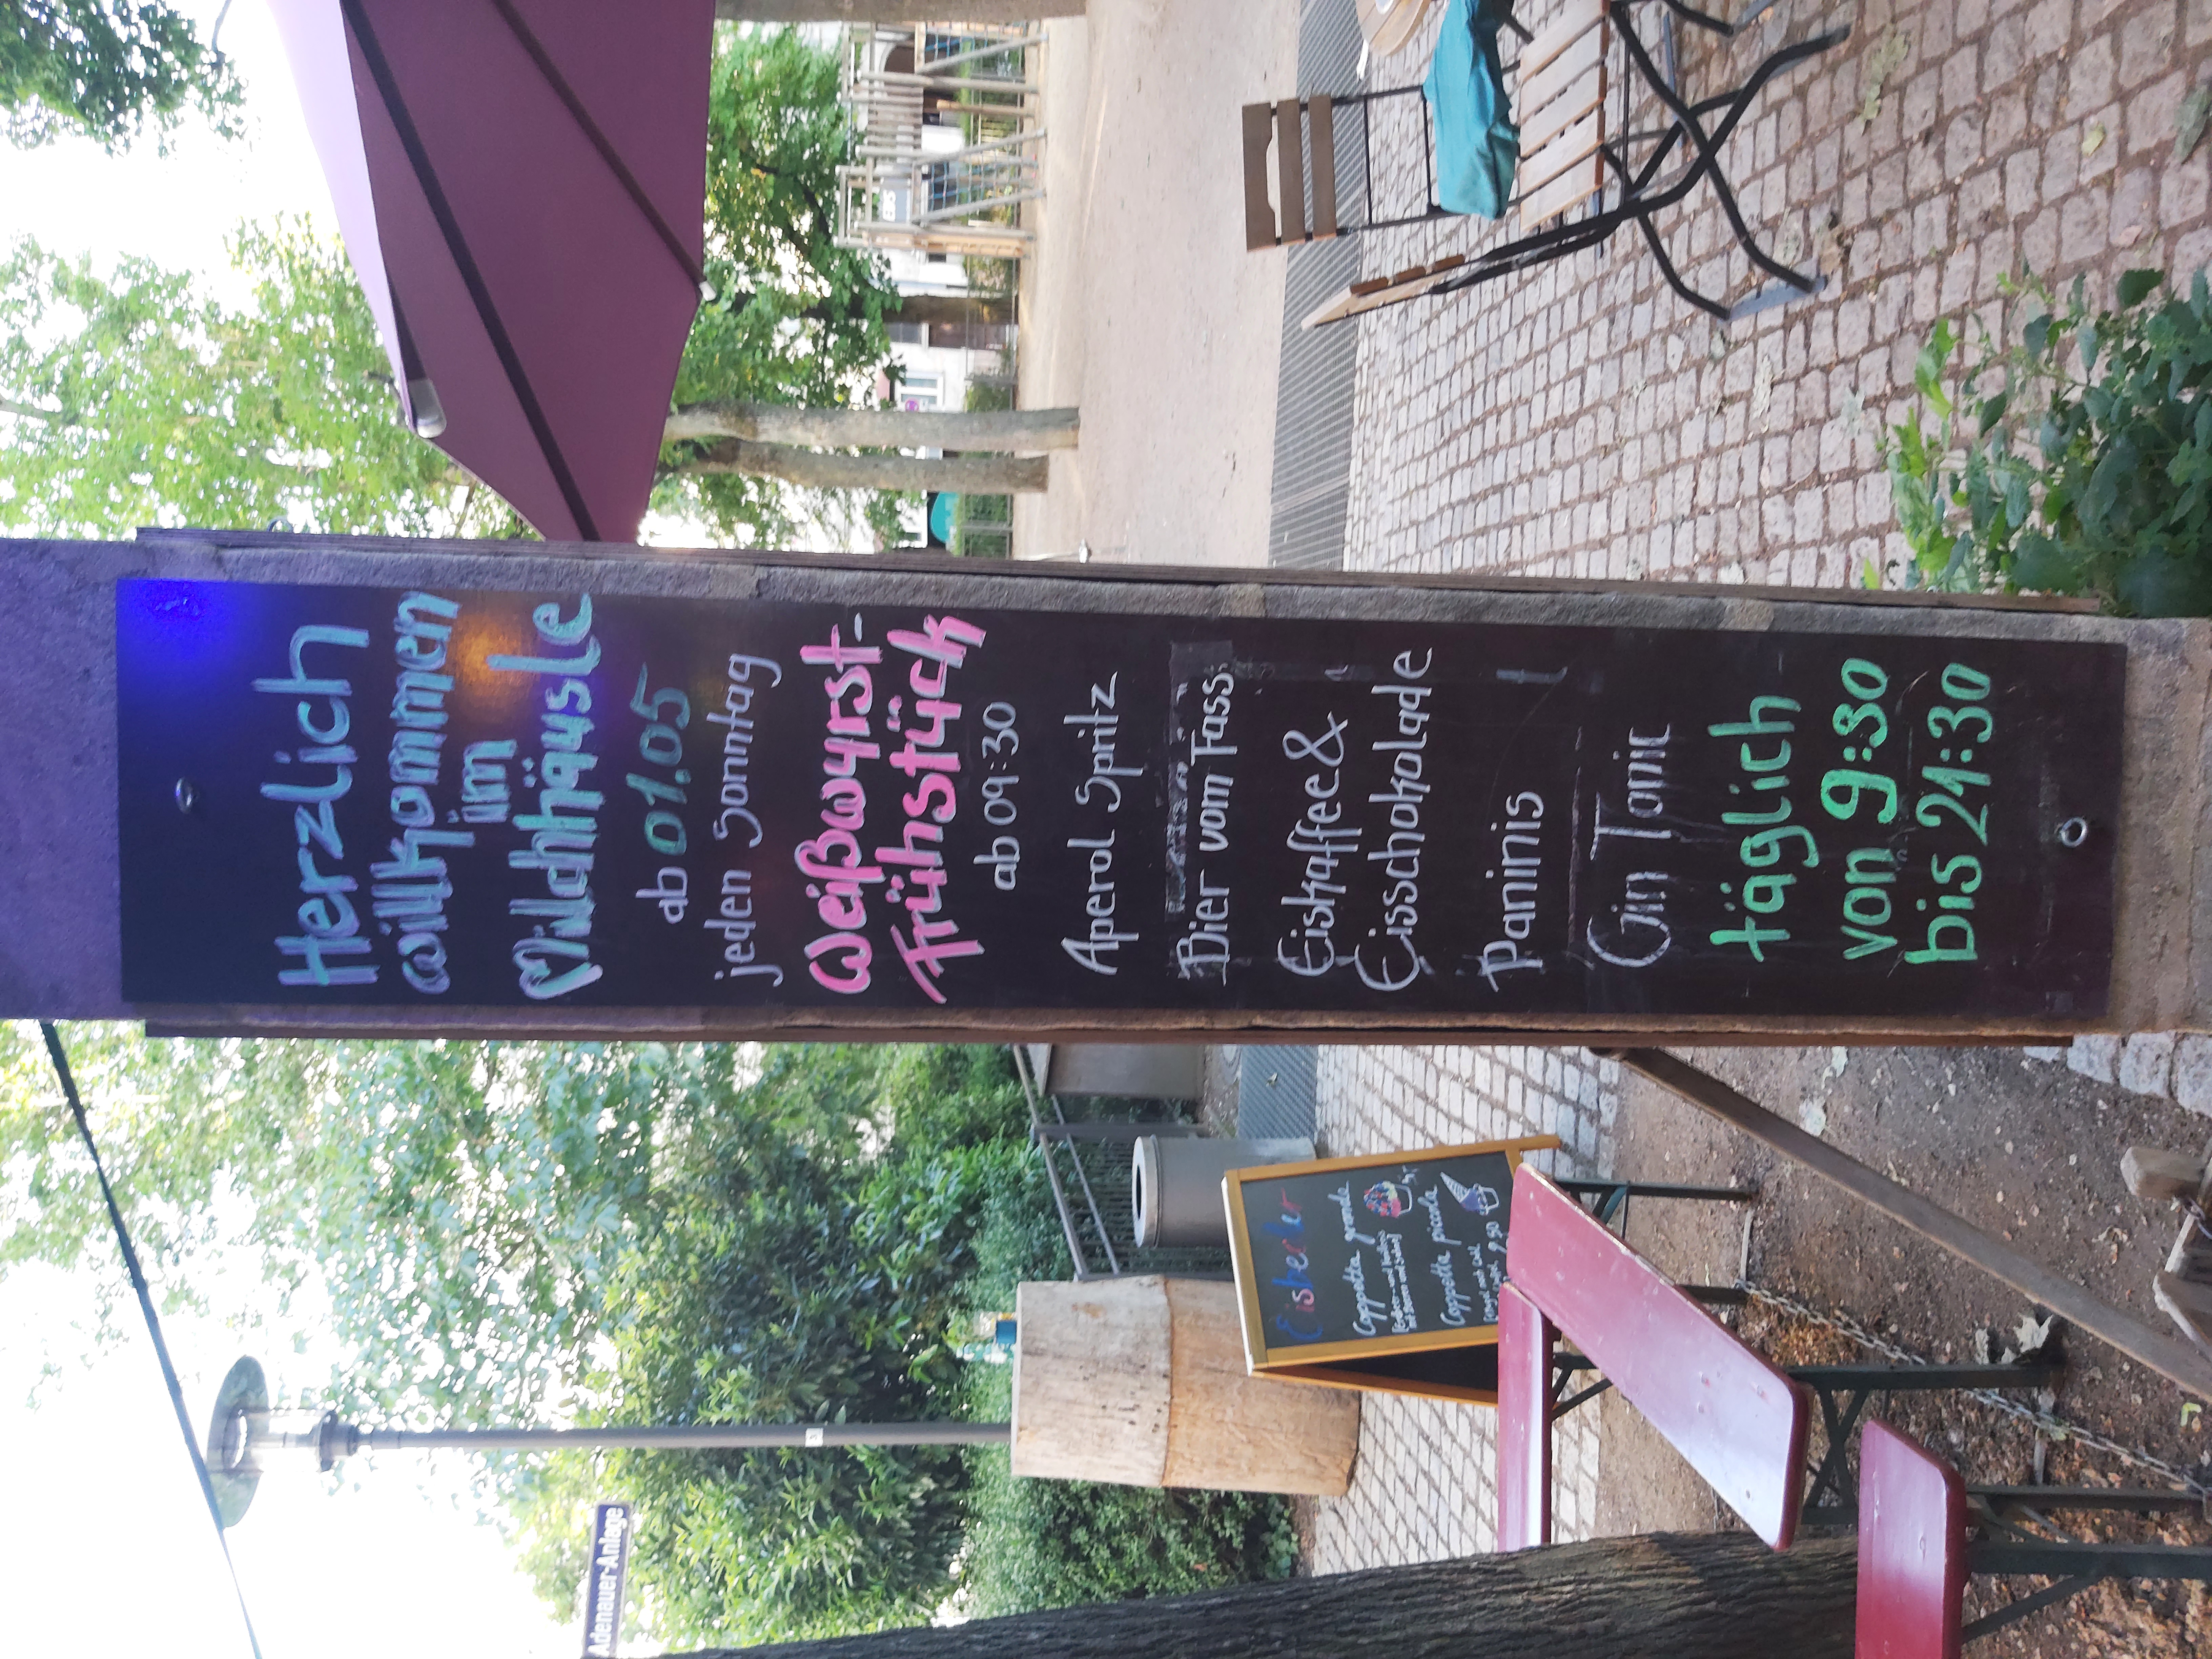 Herzlich
willkommen
im
Milchhäusle
ab 01.05
jeden Sonntag
Weißwurst-
Frühstück
ab 09:30
Aperol Spritz
Bier vom Fass
Eiskaffee &
Eisschokolade
Paninis
Gin Tonic
täglich
von 9:30
bis 21:30
Eisbecher
Coppetta grande
Coppetta piccola
Adenauer-Anlage